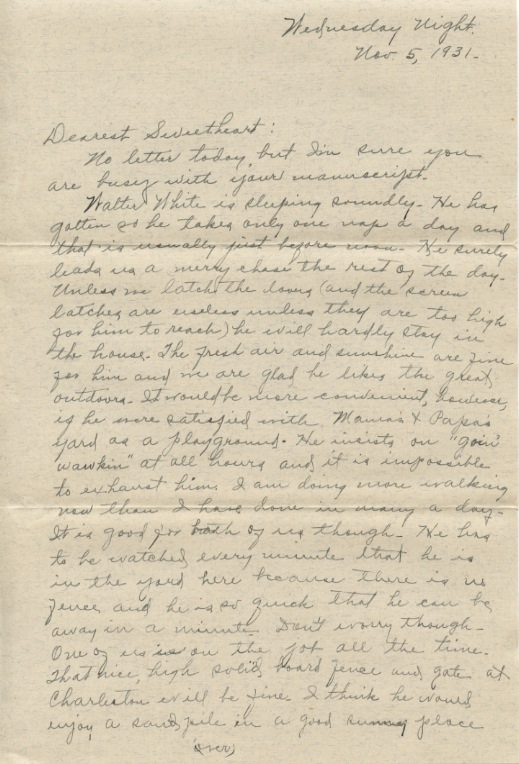 Wednesday Night.
Nov. 5, 1931.
Dearest Sweetheart:
No letter today, but I'm sure you
are busy with your manuscript.
Walter White is sleeping soundly. He has
gotten so he takes only one nap a day and
that is usually just before noon. He surely
leads us a merry chase the rest of the day.
Unless we latch the doors (and the screen
latches are useless unless they are too high
for him to reach) he will hardly stay in
the house. The fresh air and sunshine are fine
for him and we are glad he likes the great
outdoors. It would be more convenient, however,
if he were satisfied with Mama's & Papa's
yard as a playground. He insists on "goin'
wawkin" at all hours and it is impossible
to exhaust him. I am doing more walking
now than I have done in many a day.
It is good for both of us though. He has
to be watched every minute that he is
in the yard here because there is no
fence and he is so quick that he can be
away in a minute. Don't worry though.
One of us is on the job all the time.
That nice, high solid board fence and gate at
Charleston will be fine. I think he would
enjoy a sand pile in a good sunny place
(over)